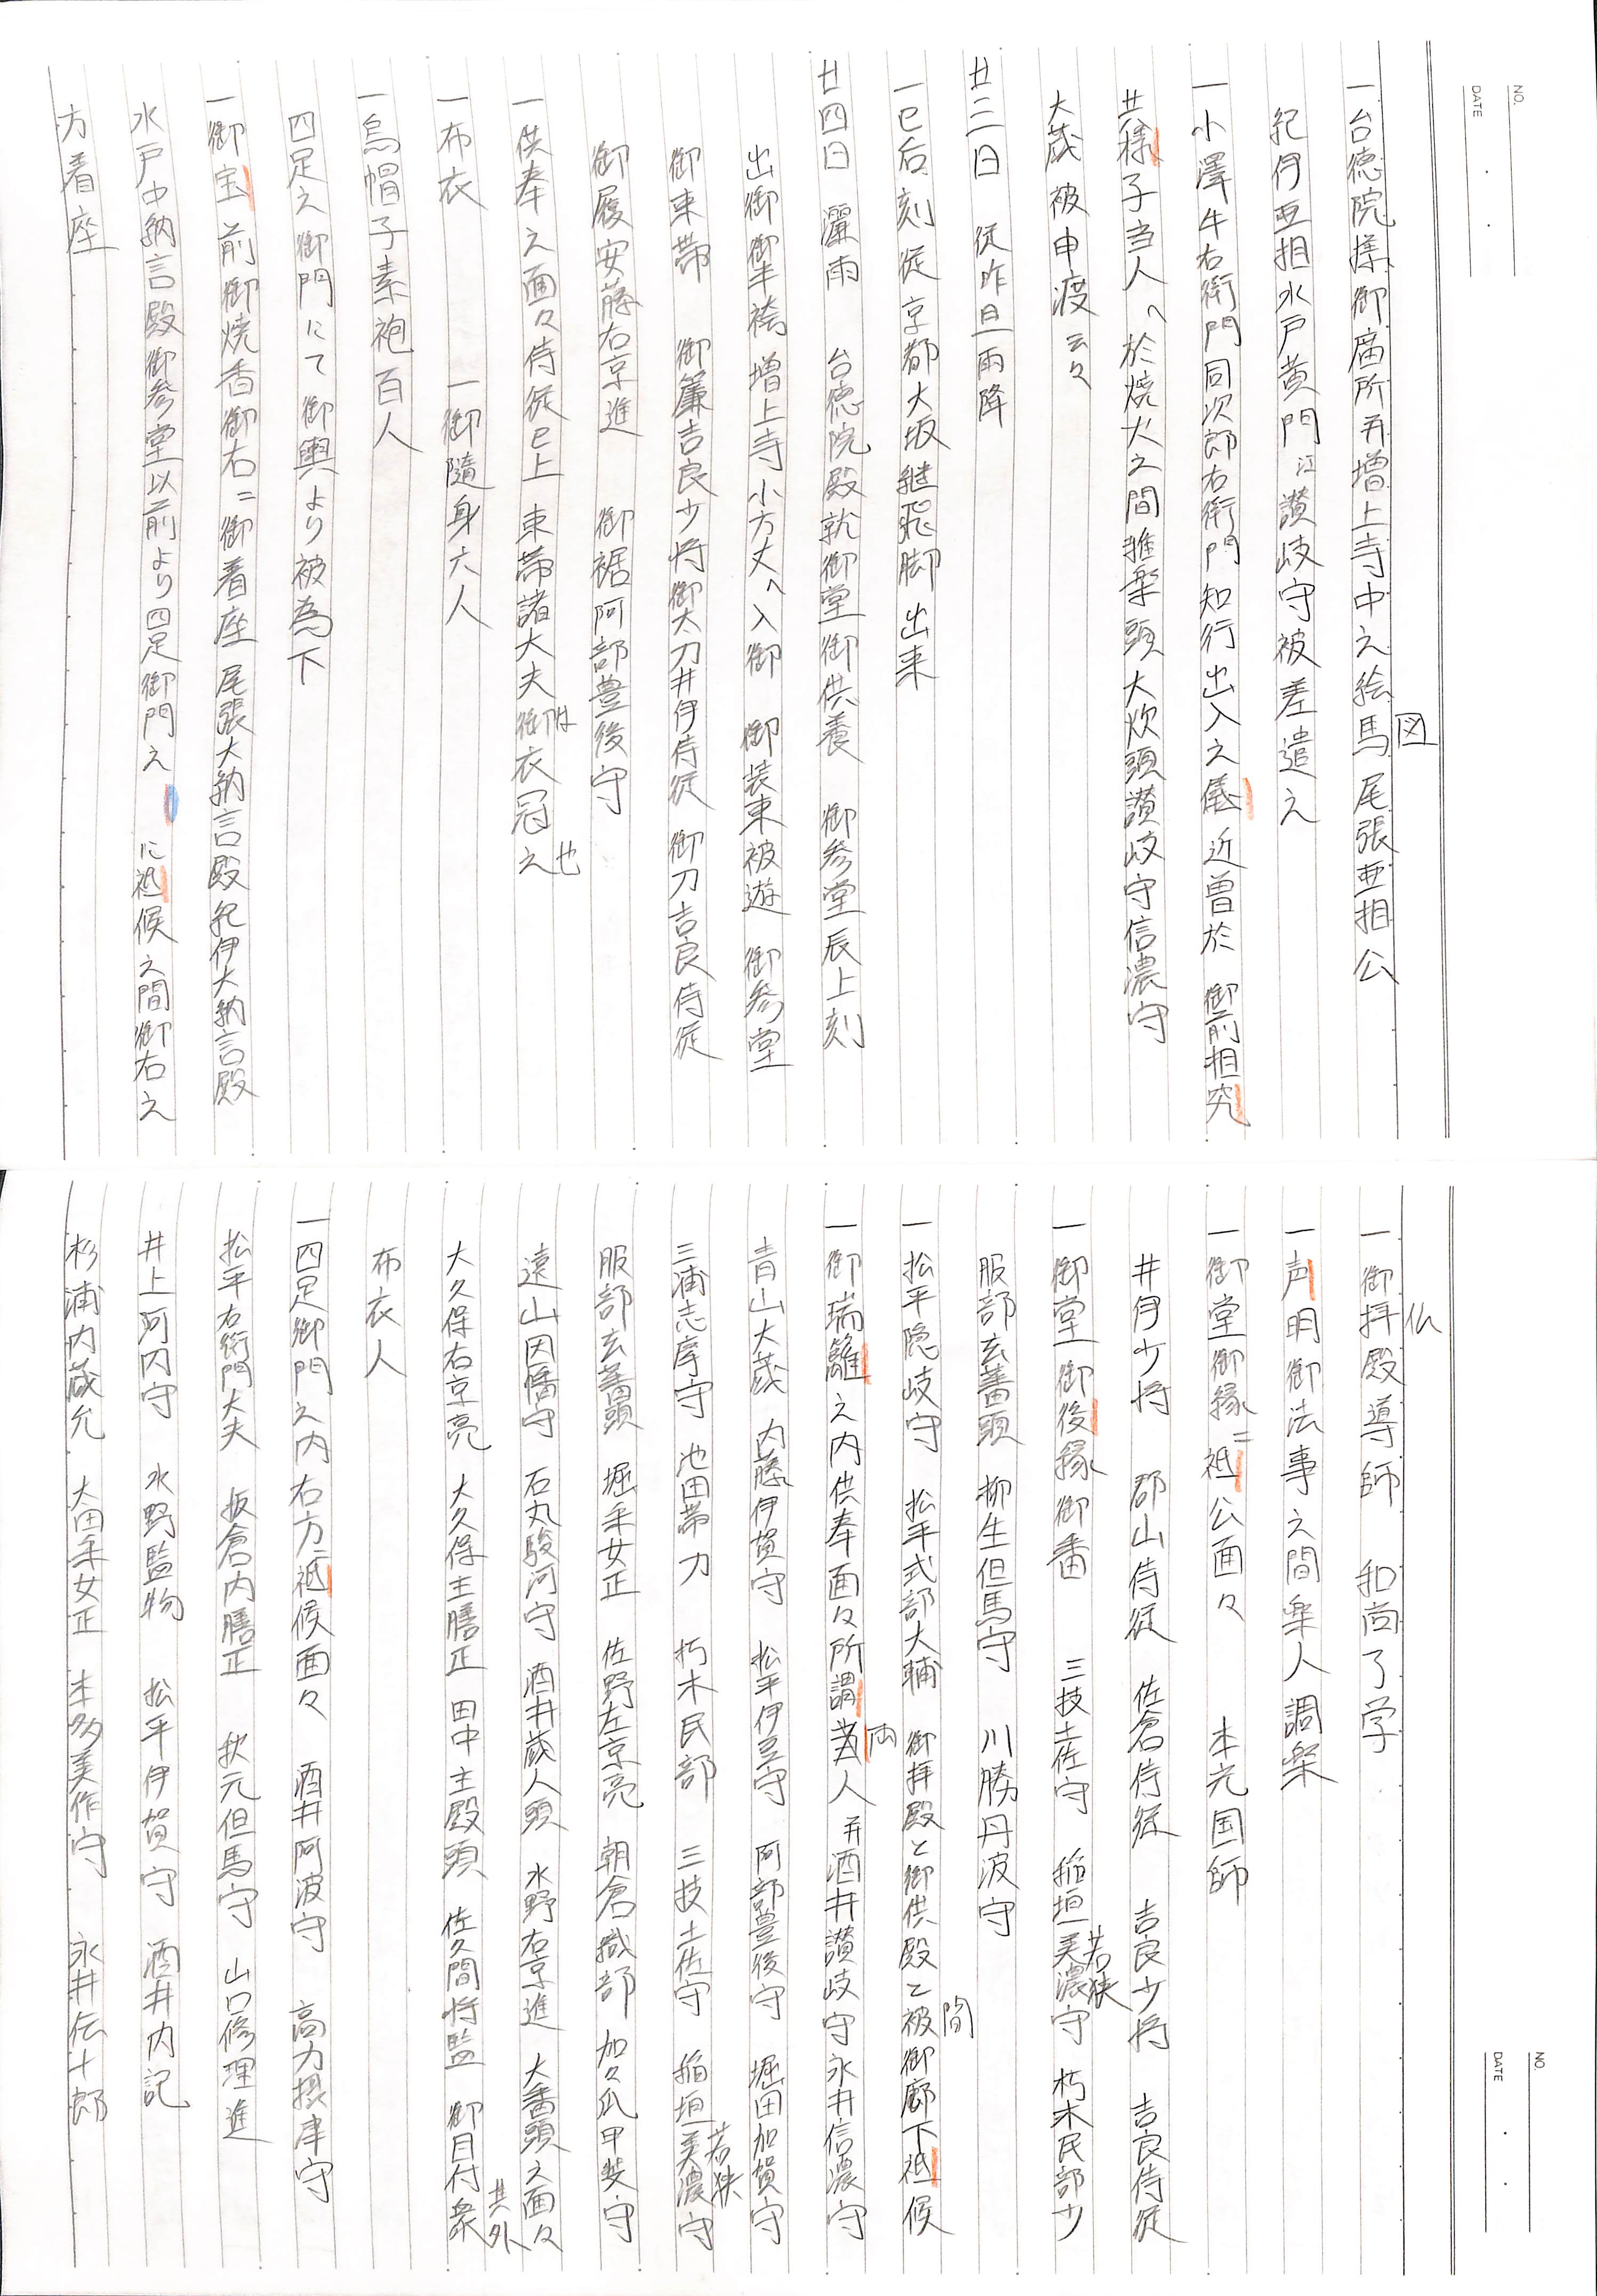 NO.
DATE
一台徳院様御廟所并増上寺中之絵馬尾張亜相公
図
紀伊亜相水戸黄門江讃岐守被差遣之
一小澤牛右衛門同次郎右衛門知行出入之儀近曽於 御前相究
其様子当人へ於焼火之間雅楽頭大炊頭讃岐守信濃守
大蔵被申渡云々
廿三日 従昨日雨降
一巳后刻従京都大坂継飛脚出来
廿四日 灑雨 台徳院殿就御堂御供養 御参堂辰上刻
出御御半袴増上寺小方丈へ入御 御装束被遊 御参堂
御束帯 御簾吉良少将御太刀井伊侍従 御刀吉良侍従
御履安藤右京進 御裾阿部豊後守
一供奉之面々侍従已上 束帯諸大夫御衣冠之
は
也
一布衣 一御随身六人
一烏帽子素袍百人
四足之御門にて御輿より被為下
一御宝前御焼香御右ニ御着座尾張大納言殿紀伊大納言殿
水戸中納言殿御参堂以前より四足御門之 に祗候之間御右之
方着座
NO.
DATE
一御拝殿導師 和尚了学
仏
一声明御法事之間楽人調楽
一御堂御縁ニ祗公面々 本光国師
井伊少将 郡山侍従 佐倉侍従 吉良少将 吉良侍従
一御堂御後縁御番 三技土佐守 稲垣美濃守 朽木民部少
若狭
服部玄蕃頭 柳生但馬守 川勝丹波守
一松平隠岐守 松平式部大輔 御拝殿と御供殿と被御廊下祗候
間
一御瑞籬之内供奉面々所謂当人并酒井讃岐守永井信濃守
両
青山大蔵 内藤伊賀守 松平伊豆守 阿部豊後守 堀田加賀守
三浦志摩守 池田帯刀 朽木民部 三技土佐守 稲垣美濃守
若狭
服部玄蕃頭 堀采女正 佐野左京亮 朝倉織部 加々爪甲斐守
遠山因幡守 石丸駿河守 酒井蔵人頭 水野右京進 大番頭之面々
大久保右京亮 大久保主膳正 田中主殿頭 佐久間将監 御目付衆
其外
布衣人
一四足御門之内右方ニ祗候面々 酒井阿波守 高力摂津守
松平右衛門大夫 板倉内膳正 秋元但馬守 山口修理進
井上河内守 水野監物 松平伊賀守 酒井内記
杉浦内蔵允 大田采女正 本多美作守 永井伝十郎